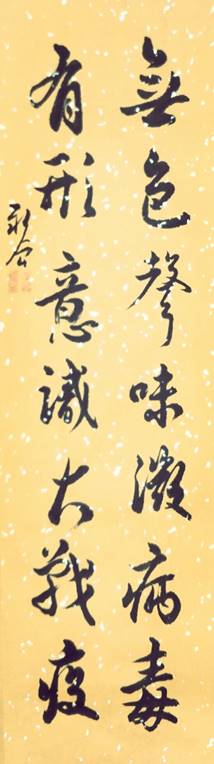 無色聲味微病毒
有形意識大戰疫